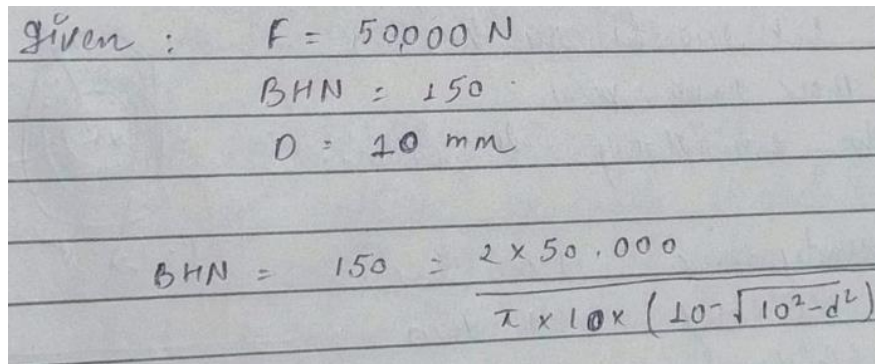 Given : F = 50,000 N
BHN = 150
D = 10 mm
BHN = 150 = 2 x 50.000
π x 10 x (10-√10²-d²)